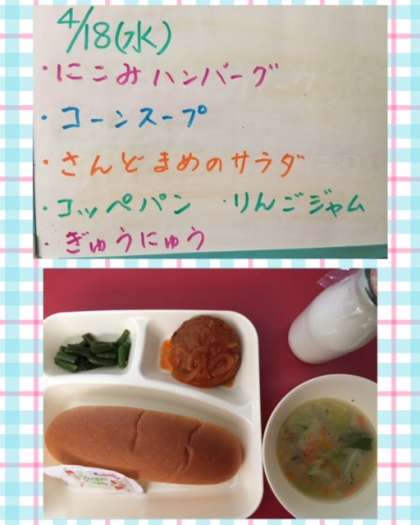 4/18(水)
・にこみハンバーグ
・コーンスープ
・さんどまめのサラダ
・コッペパン ・りんごジャム
・ぎゅうにゅう